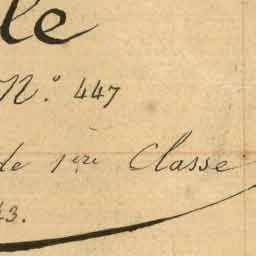 le
N° 447
de 1ère Classe
43.